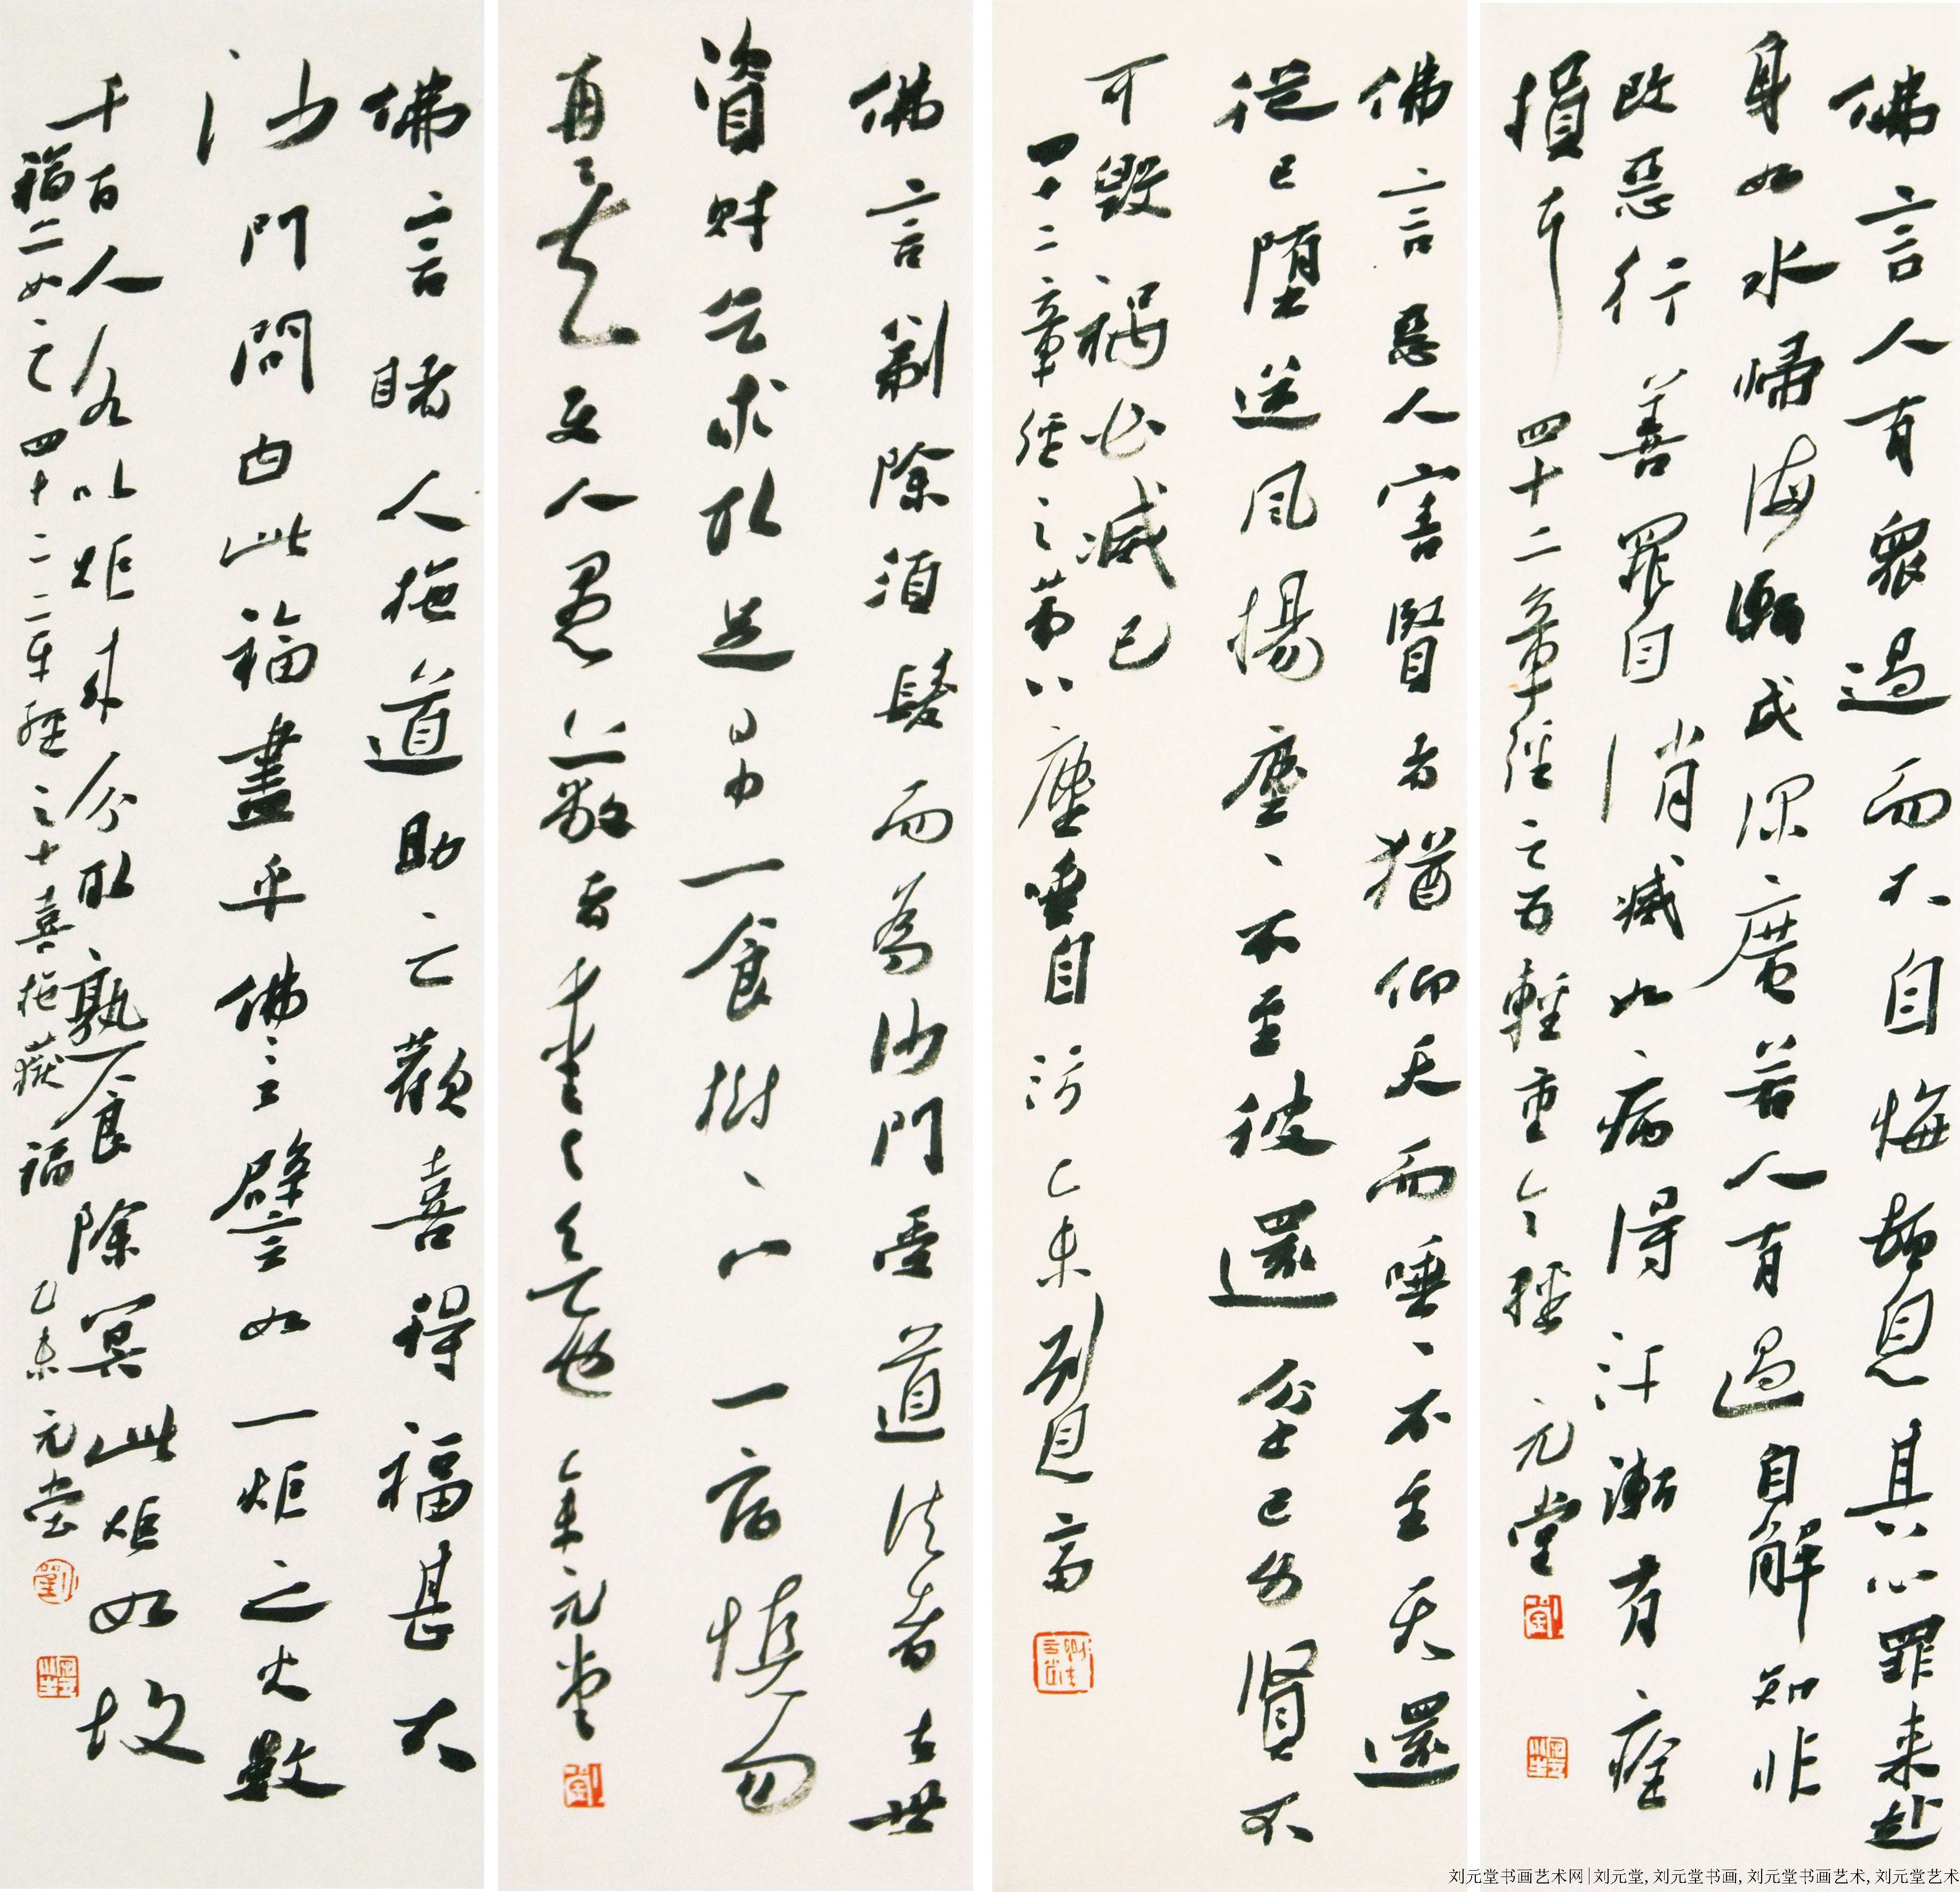 佛言人有眾過而不自悔頓息其心罪来赴
身如水歸海漸成深廣若人有過自解知非
改惡行善罪自消滅如病得汗漸有痊
損耳
四十二章經之五輕重令輕 元堂
佛言惡人害賢者猶仰天而唾唾不至天還
從己墮逆風揚塵塵不至彼還坌己身賢不
可毀禍必滅己
四十二章經之第八塵唾自污 乙未 元堂
佛言剃除須髮而為沙門受道法者去世
資財乞求取足日中一食樹下一宿慎勿
再矣使人愚蔽者愛與欲也 乙未元堂
佛言睹人施道助之歡喜得福甚大
沙門問曰此福盡乎佛言譬如一炬之火數
千百人各以炬来分取熟食除冥此炬如故
福亦如之 四十二章經之十喜施獲福 乙未 元堂
刘元堂书画艺术网|刘元堂,刘元堂书画,刘元堂书画艺术,刘元堂艺术